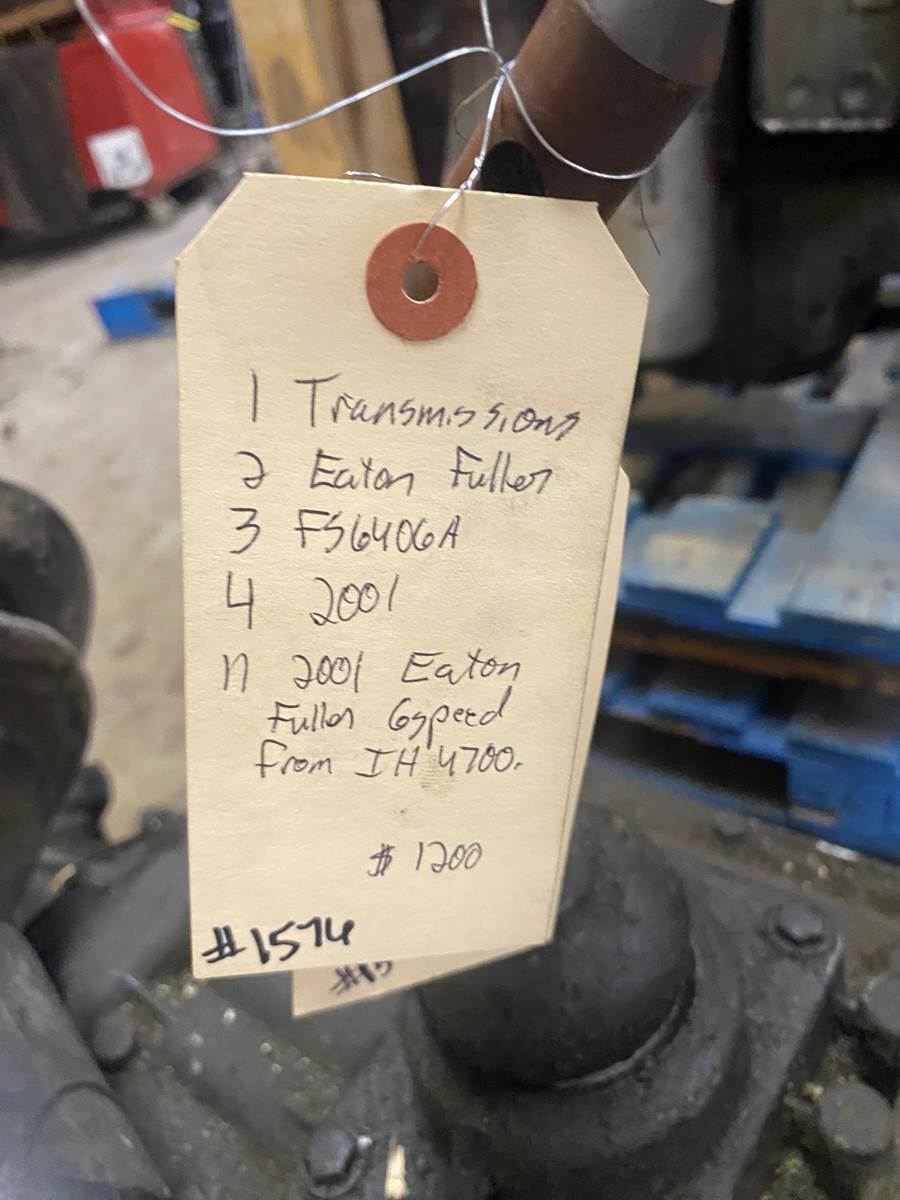 1 Transmissions
2 Eaton Fuller
3 FS6406A
4 2001
11 2001 Eaton
Fuller 6speed
from IH 4700.
$ 1200
#1574
#15